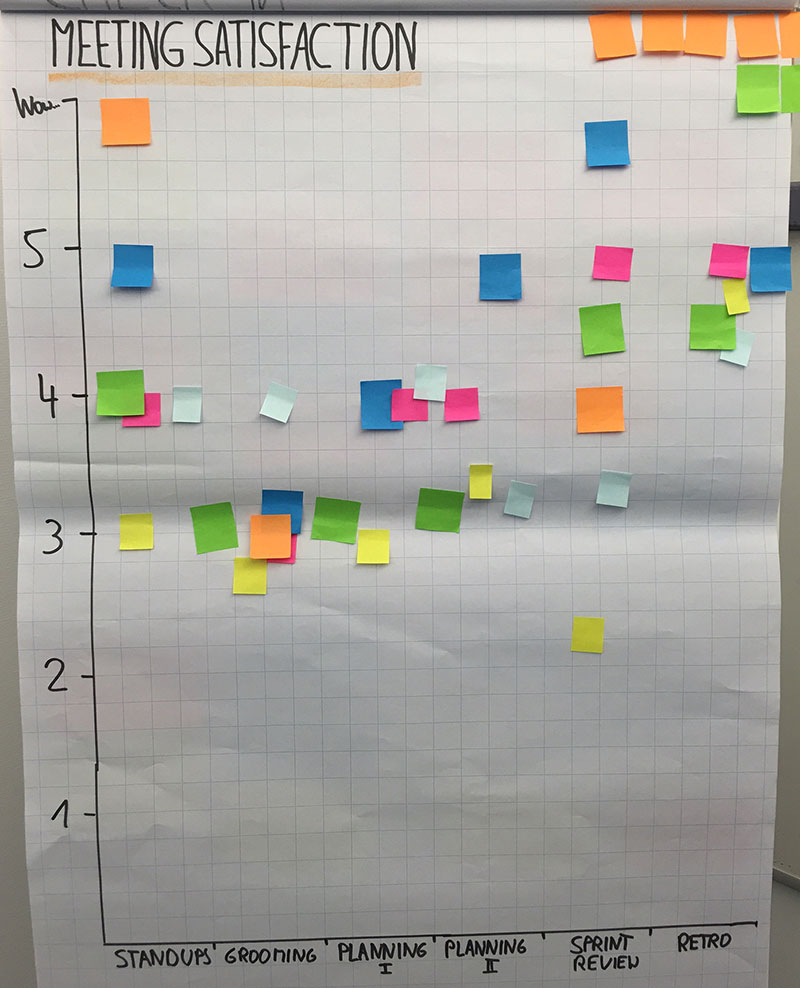 MEETING SATISFACTION
Wow..
5
4
3
2
1
STANDUPS
GROOMING
PLANNING
I
PLANNING
II
SPRINT
REVIEW
RETRO